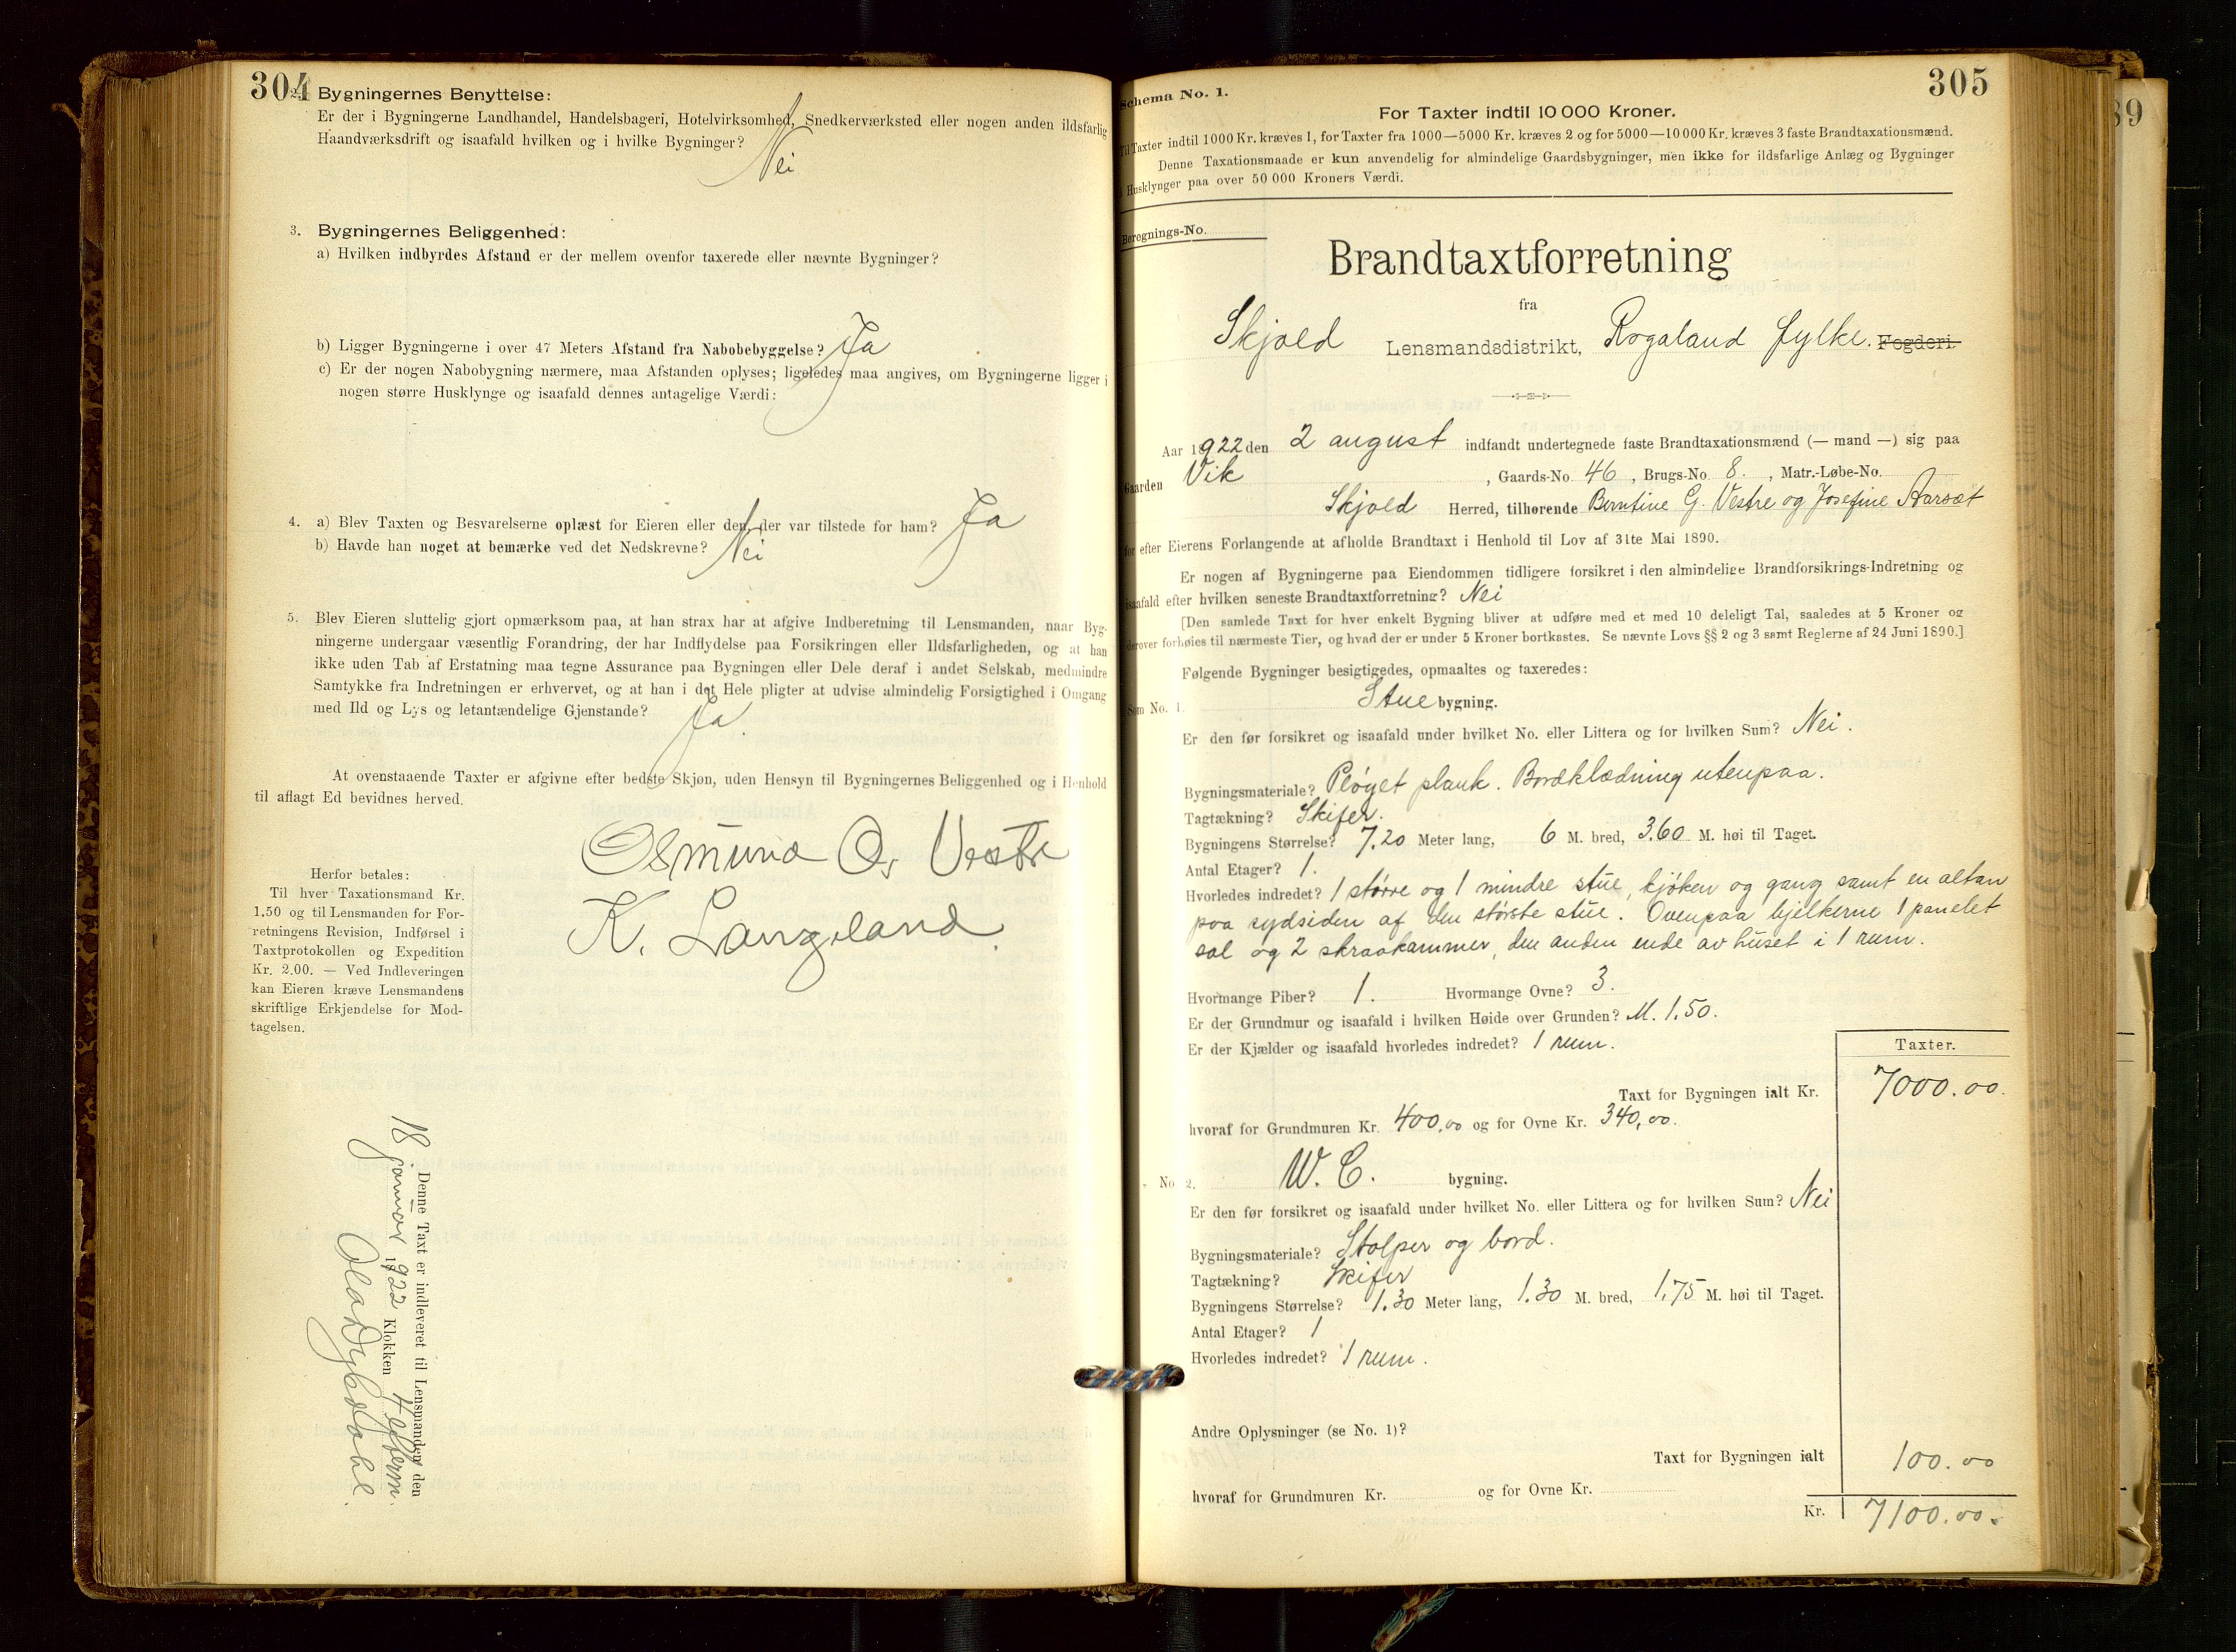 304
2. Bygningernes Benyttelse:
Er der i Bygningerne Landhandel, Handelsbageri, Hotelvirksomhed, Snedkerværksted eller nogen anden ildsfarlig
Haandværksdrift og isaafald hvilken og i hvilke Bygninger?
Nei
3. Bygningernes Beliggenhed:
a) Hvilken indbyrdes Afstand er der mellem ovenfor taxerede eller nævnte Bygninger?
b) Ligger Bygningerne i over 47 Meters Afstand fra Nabobebyggelse? Ja
c) Er der nogen Nabobygning nærmere, maa Afstanden oplyses; ligeledes maa angives, om Bygningerne ligger i
nogen større Husklynge og isaafald dennes antagelige Værdi:
4. a) Blev Taxten og Besvarelserne oplæst for Eieren eller den, der var tilstede for ham? Ja
b) Havde han noget at bemærke ved det Nedskrevne? Nei
5. Blev Eieren sluttelig gjort opmærksom paa, at han strax har at afgive Indberetning til Lensmanden, naar Byg-
ningerne undergaar væsentlig Forandring, der har Indflydelse paa Forsikringen eller Ildsfarligheden, og at han
ikke uden Tab af Erstatning maa tegne Assurance paa Bygningen eller Dele deraf i andet Selskab, medmindre
Samtykke fra Indretningen er erhvervet, og at han i det Hele pligter at udvise almindelig Forsigtighed i Omgang
med Ild og Lys og letantændelige Gjenstande? Ja.
At ovenstaaende Taxter er afgivne efter bedste Skjøn, uden Hensyn til Bygningernes Beliggenhed og i Henhold
til aflagt Ed bevidnes herved.
Osmund O. Vestre
K. Langeland.
Herfor betales:
Til hver Taxationsmand Kr.
1.50 og til Lensmanden for For-
retningens Revision, Indførsel i
Taxtprotokollen og Expedition
Kr. 2.00. — Ved Indleveringen
kan Eieren kræve Lensmandens
skriftlige Erkjendelse for Mod-
tagelsen.
Denne Taxt er indleveret til Lensmanden den
18 januar 1922 Klokken 4 efterm.
305
Schema No. 1.
For Taxter indtil 10 000 Kroner.
Til Taxter indtil 1000 Kr. kræves 1, for Taxter fra 1000—5000 Kr. kræves 2 og for 5000—10 000 Kr. kræves 3 faste Brandtaxationsmænd.
Denne Taxationsmaade er kun anvendelig for almindelige Gaardsbygninger, men ikke for ildsfarlige Anlæg og Bygninger
i Husklynger paa over 50 000 Kroners Værdi.
Beregnings-No.
Brandtaxtforretning
fra
Skjold Lensmandsdistrikt, Rogaland fylke. Fogderi.
Aar 1922 den 2 august indfandt undertegnede faste Brandtaxationsmænd (— mand —) sig paa
Gaarden Vik, Gaards-No. 46, Brugs-No. 8., Matr.-Løbe-No.
Skjold Herred, tilhørende Berntine G. Vestre og Josefine Aarsæt
for efter Eierens Forlangende at afholde Brandtaxt i Henhold til Lov af 31te Mai 1890.
Er nogen af Bygningerne paa Eiendommen tidligere forsikret i den almindelige Brandforsikrings-Indretning og
isaafald efter hvilken seneste Brandtaxtforretning? Nei
[Den samlede Taxt for hver enkelt Bygning bliver at udføre med et med 10 deleligt Tal, saaledes at 5 Kroner og
derover forhøies til nærmeste Tier, og hvad der er under 5 Kroner bortkastes. Se nævnte Lovs §§ 2 og 3 samt Reglerne af 24 Juni 1890.]
Følgende Bygninger besigtigedes, opmaaltes og taxeredes:
Som No. 1. Stue bygning.
Er den før forsikret og isaafald under hvilket No. eller Littera og for hvilken Sum? Nei.
Bygningsmateriale? Pløyet plank. Bordklædning utenpaa.
Tagtækning? Skifer.
Bygningens Størrelse? 7,20 Meter lang, 6 M. bred, 3.60 M. høi til Taget.
Antal Etager? 1.
Hvorledes indredet? 1 større og 1 mindre stue, kjøken og gang samt en altan
paa sydsiden af den største stue. Ovenpaa bjelkerne 1 panelet
sal og 2 skraakammer, den anden ende av huset i 1 rum.
Hvormange Piber? 1. Hvormange Ovne? 3.
Er der Grundmur og isaafald i hvilken Høide over Grunden? M. 1.50.
Er der Kjælder og isaafald hvorledes indredet? 1 rum.
Taxter.
Taxt for Bygningen ialt Kr. 7000.00.
hvoraf for Grundmuren Kr. 400,00 og for Ovne Kr. 340,00.
- No. 2. W. C. bygning.
Er den før forsikret og isaafald under hvilket No. eller Littera og for hvilken Sum? Nei
Bygningsmateriale? Stolper og bord.
Tagtækning? Skifer
Bygningens Størrelse? 1.30 Meter lang, 1.30 M. bred, 1,75 M. høi til Taget.
Antal Etager? 1
Hvorledes indredet? 1 rum.
Andre Oplysninger (se No. 1)?
Taxt for Bygningen ialt 100.00
hvoraf for Grundmuren Kr. og for Ovne Kr.
Kr. 7100.00.
89